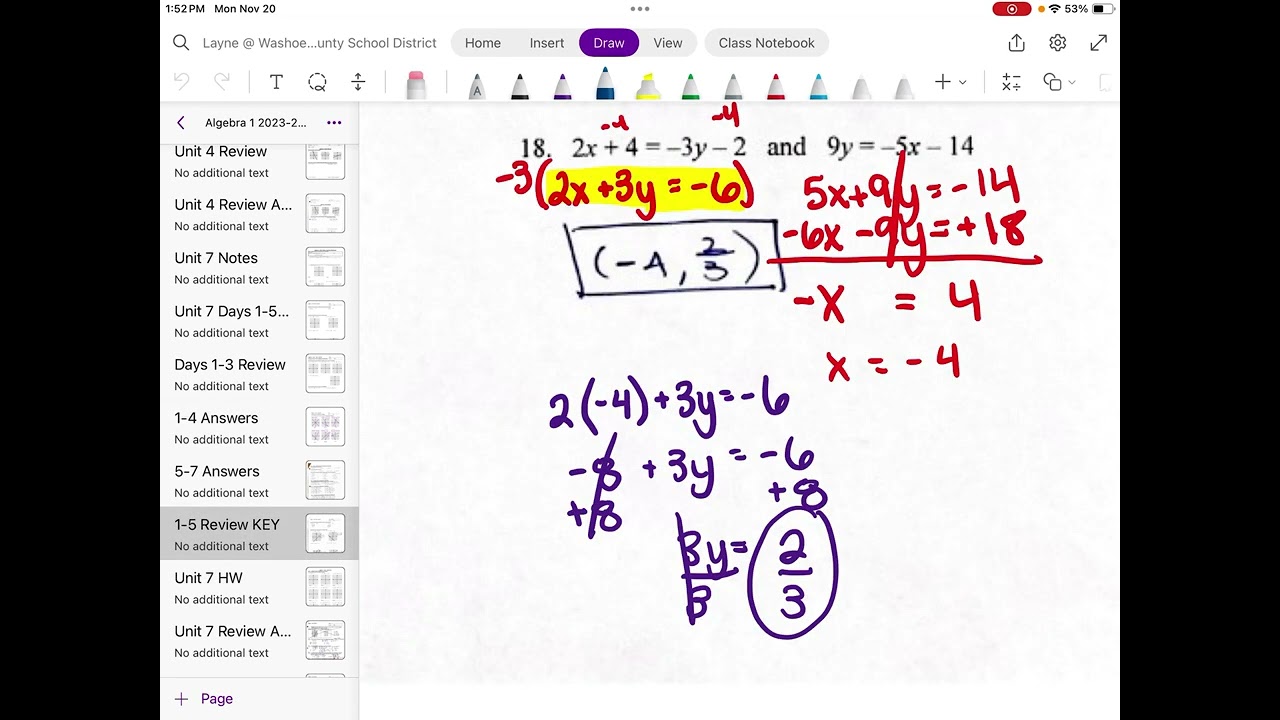 1:52 PM Mon Nov 20
53%
Layne @ Washoe...unty School District
Home Insert Draw View Class Notebook
Algebra 1 2023-2...
Unit 4 Review
No additional text
Unit 4 Review A...
No additional text
Unit 7 Notes
No additional text
Unit 7 Days 1-5...
No additional text
Days 1-3 Review
No additional text
1-4 Answers
No additional text
5-7 Answers
No additional text
1-5 Review KEY
No additional text
Unit 7 HW
No additional text
Unit 7 Review A...
No additional text
+ Page
-4 -4
18. 2x + 4 = –3y – 2 and 9y = –5x – 14
-3(2x+3y=-6)
5x+9y=-14
-6x-9y=+18
(-4, 2/3)
-x = 4
x = -4
2(-4)+3y=-6
-8 +3y=-6
+8 +8
3y= 2
3 3